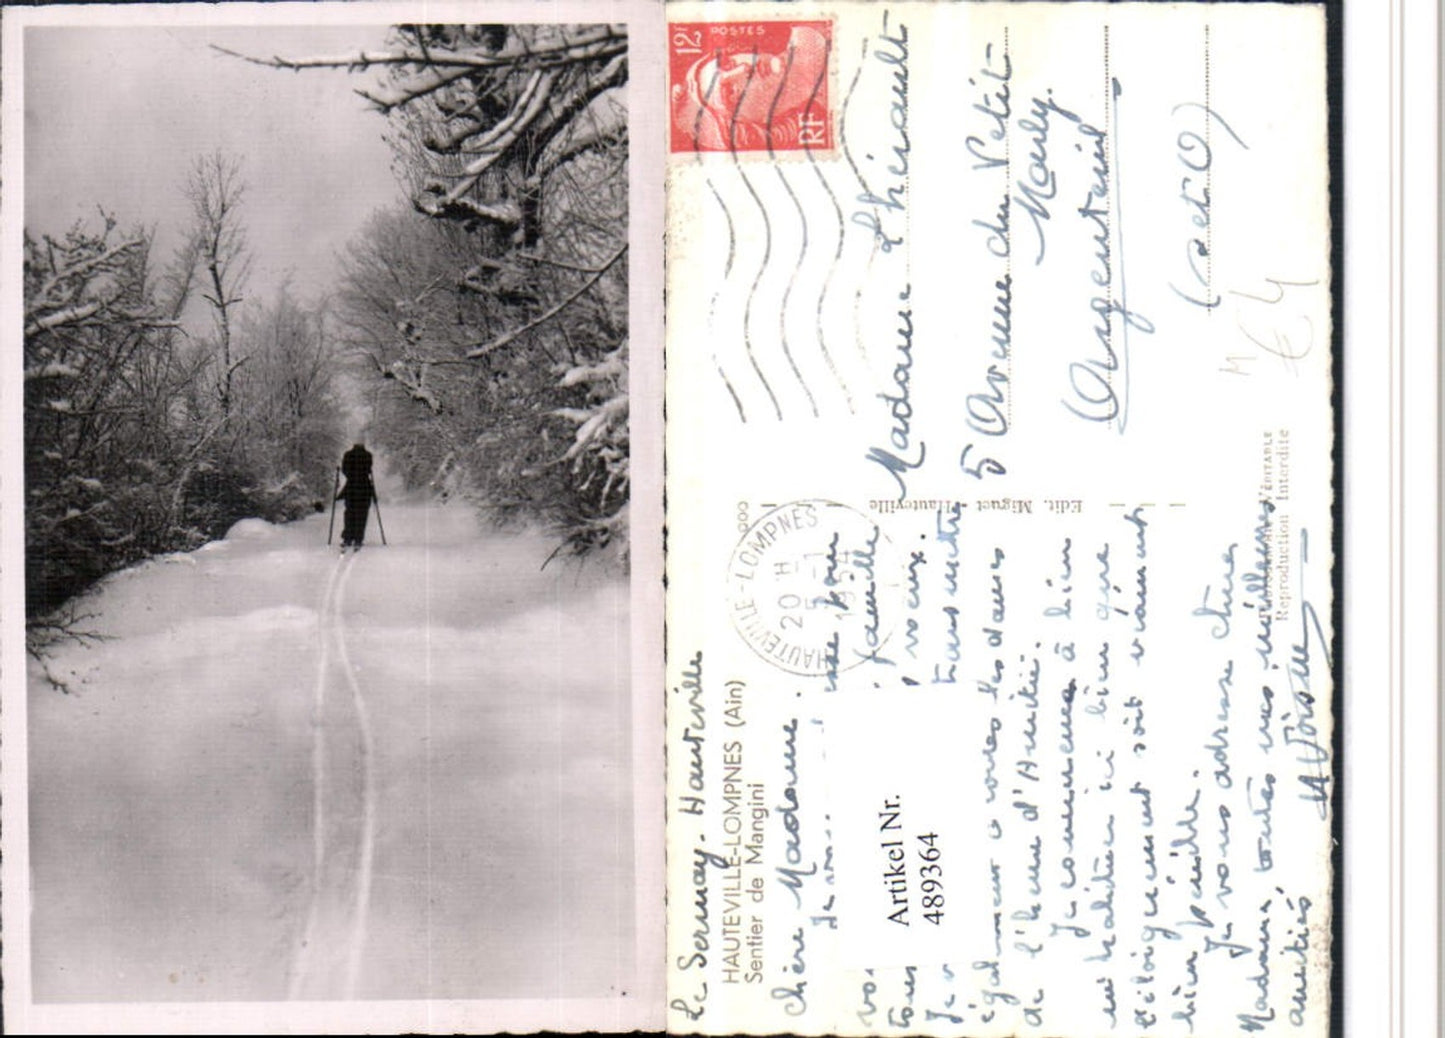 12f
POSTES
RF
HAUTEVILLE-LOMPNES
20 H
25-1
1954
Madame Lhérault
5 Avenue du Petit
Marly.
Argenteuil
(S et O)
M
€4
Le Sermay. Hauteville
HAUTEVILLE-LOMPNES (Ain)
Sentier de Mangini
Chère Madame.
Je vous
famille
vœux.
Je transmettre
également à vous les dames
de l'heure d'Amitié.
Je commence à bien
m'habituer ici bien que
l'éloignement soit vraiment
bien pénible.
Je vous adresse chère
Madame toutes mes meilleures
amitiés
Artikel Nr.
489364
Edit. Miguet Hauteville
VÉRITABLE
Reproduction Interdite